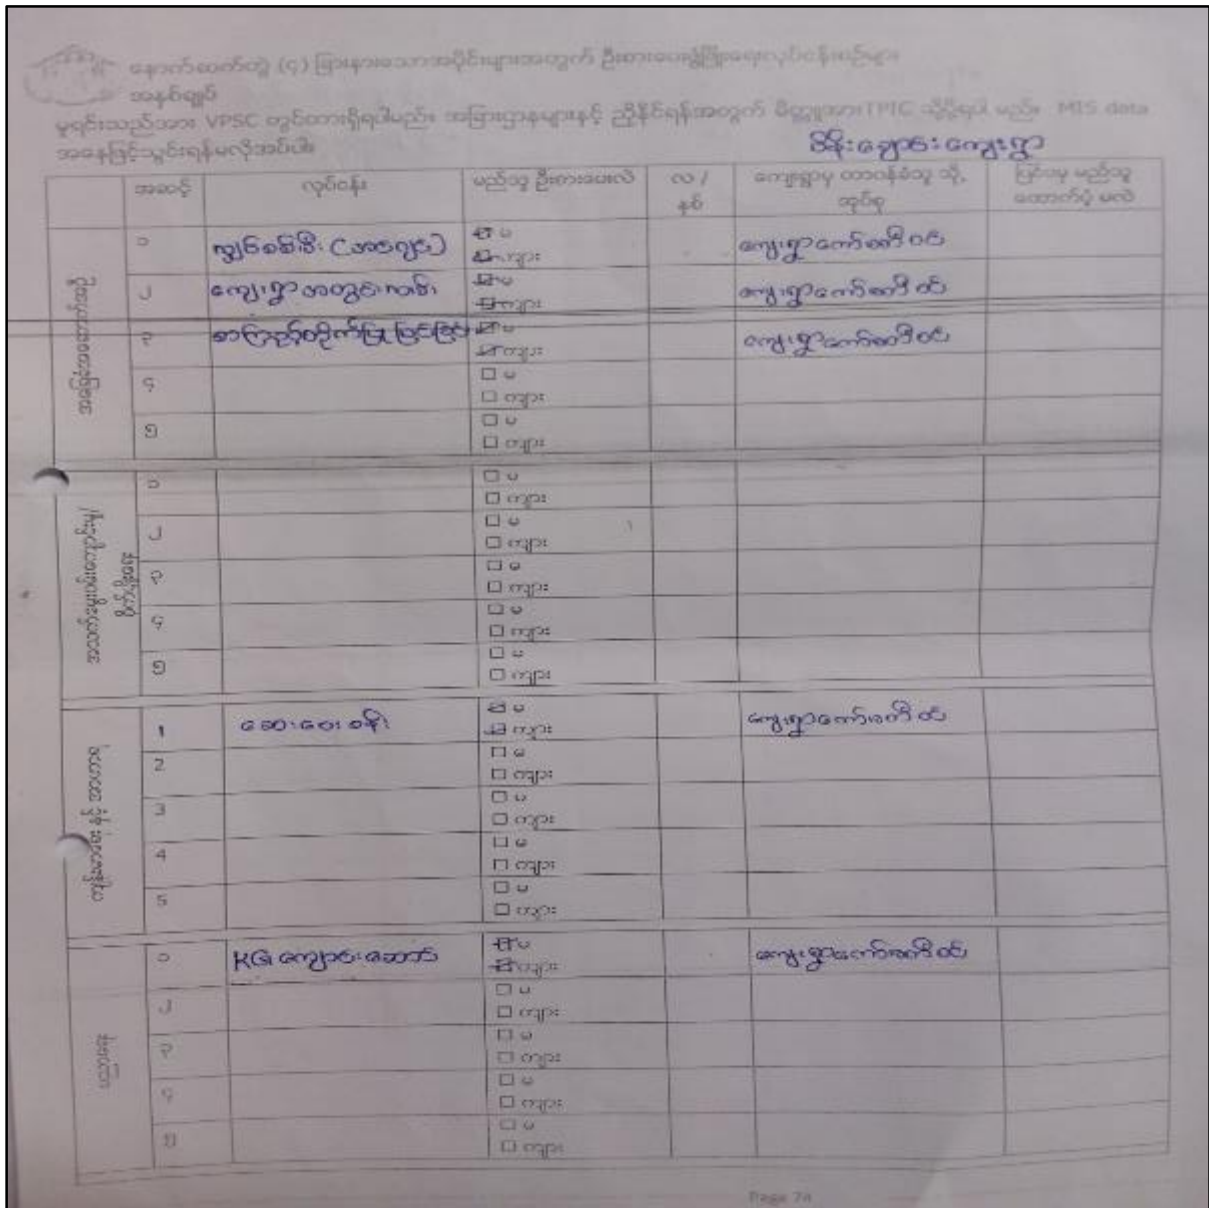 နောက်ဆက်တွဲ (၄) ခြားနားသောအပိုင်းများအတွက် ဦးစားပေးဖွံ့ဖြိုးရေးလုပ်ငန်းစဉ်များ
အနှစ်ချုပ်
မူရင်းသည်အား VPSC တွင်ထားရှိရပါမည်။ အခြားဌာနများနှင့် ညှိနှိုင်းရန်အတွက် မိတ္တူအား TPIC သို့ပို့ရပါ မည်။ MIS data
အနေဖြင့်သွင်းရန်မလိုအပ်ပါ။
ချောင်းကျေးရွာ
အဆင့် လုပ်ငန်း မည်သူ ဦးစားပေးလဲ လ / ကျေးရွာမှ တာဝန်ခံသူ သို့ ပြင်ပမှ မည်သူ
နှစ် အုပ်စု ထောက်ပံ့ မလဲ
အခြေခံအဆောက်အဦ
၁ လျှပ်စစ်မီး ( အလင်း ) မ ကျေးရွာကော်မတီ ဝင်
ကျား
၂ ကျေးရွာ အတွင်းလမ်း မ ကျေးရွာကော်မတီ ဝင်
ကျား
၃ စာကြည့်တိုက်ပြုပြင်ခြင်း မ ကျေးရွာကော်မတီ ဝင်
ကျား
၄ မ
ကျား
၅ မ
ကျား
၁ မ
ကျား
၂ မ
ကျား
၃ မ
ကျား
၄ မ
ကျား
၅ မ
ကျား
1 ဆေးပေးခန်း မ ကျေးရွာကော်မတီ ဝင်
ကျား
2 မ
ကျား
3 မ
ကျား
4 မ
ကျား
5 မ
ကျား
၁ KG ကျောင်းဆောင် မ ကျေးရွာကော်မတီ ဝင်
ကျား
၂ မ
ကျား
၃ မ
ကျား
၄ မ
ကျား
၅ မ
ကျား